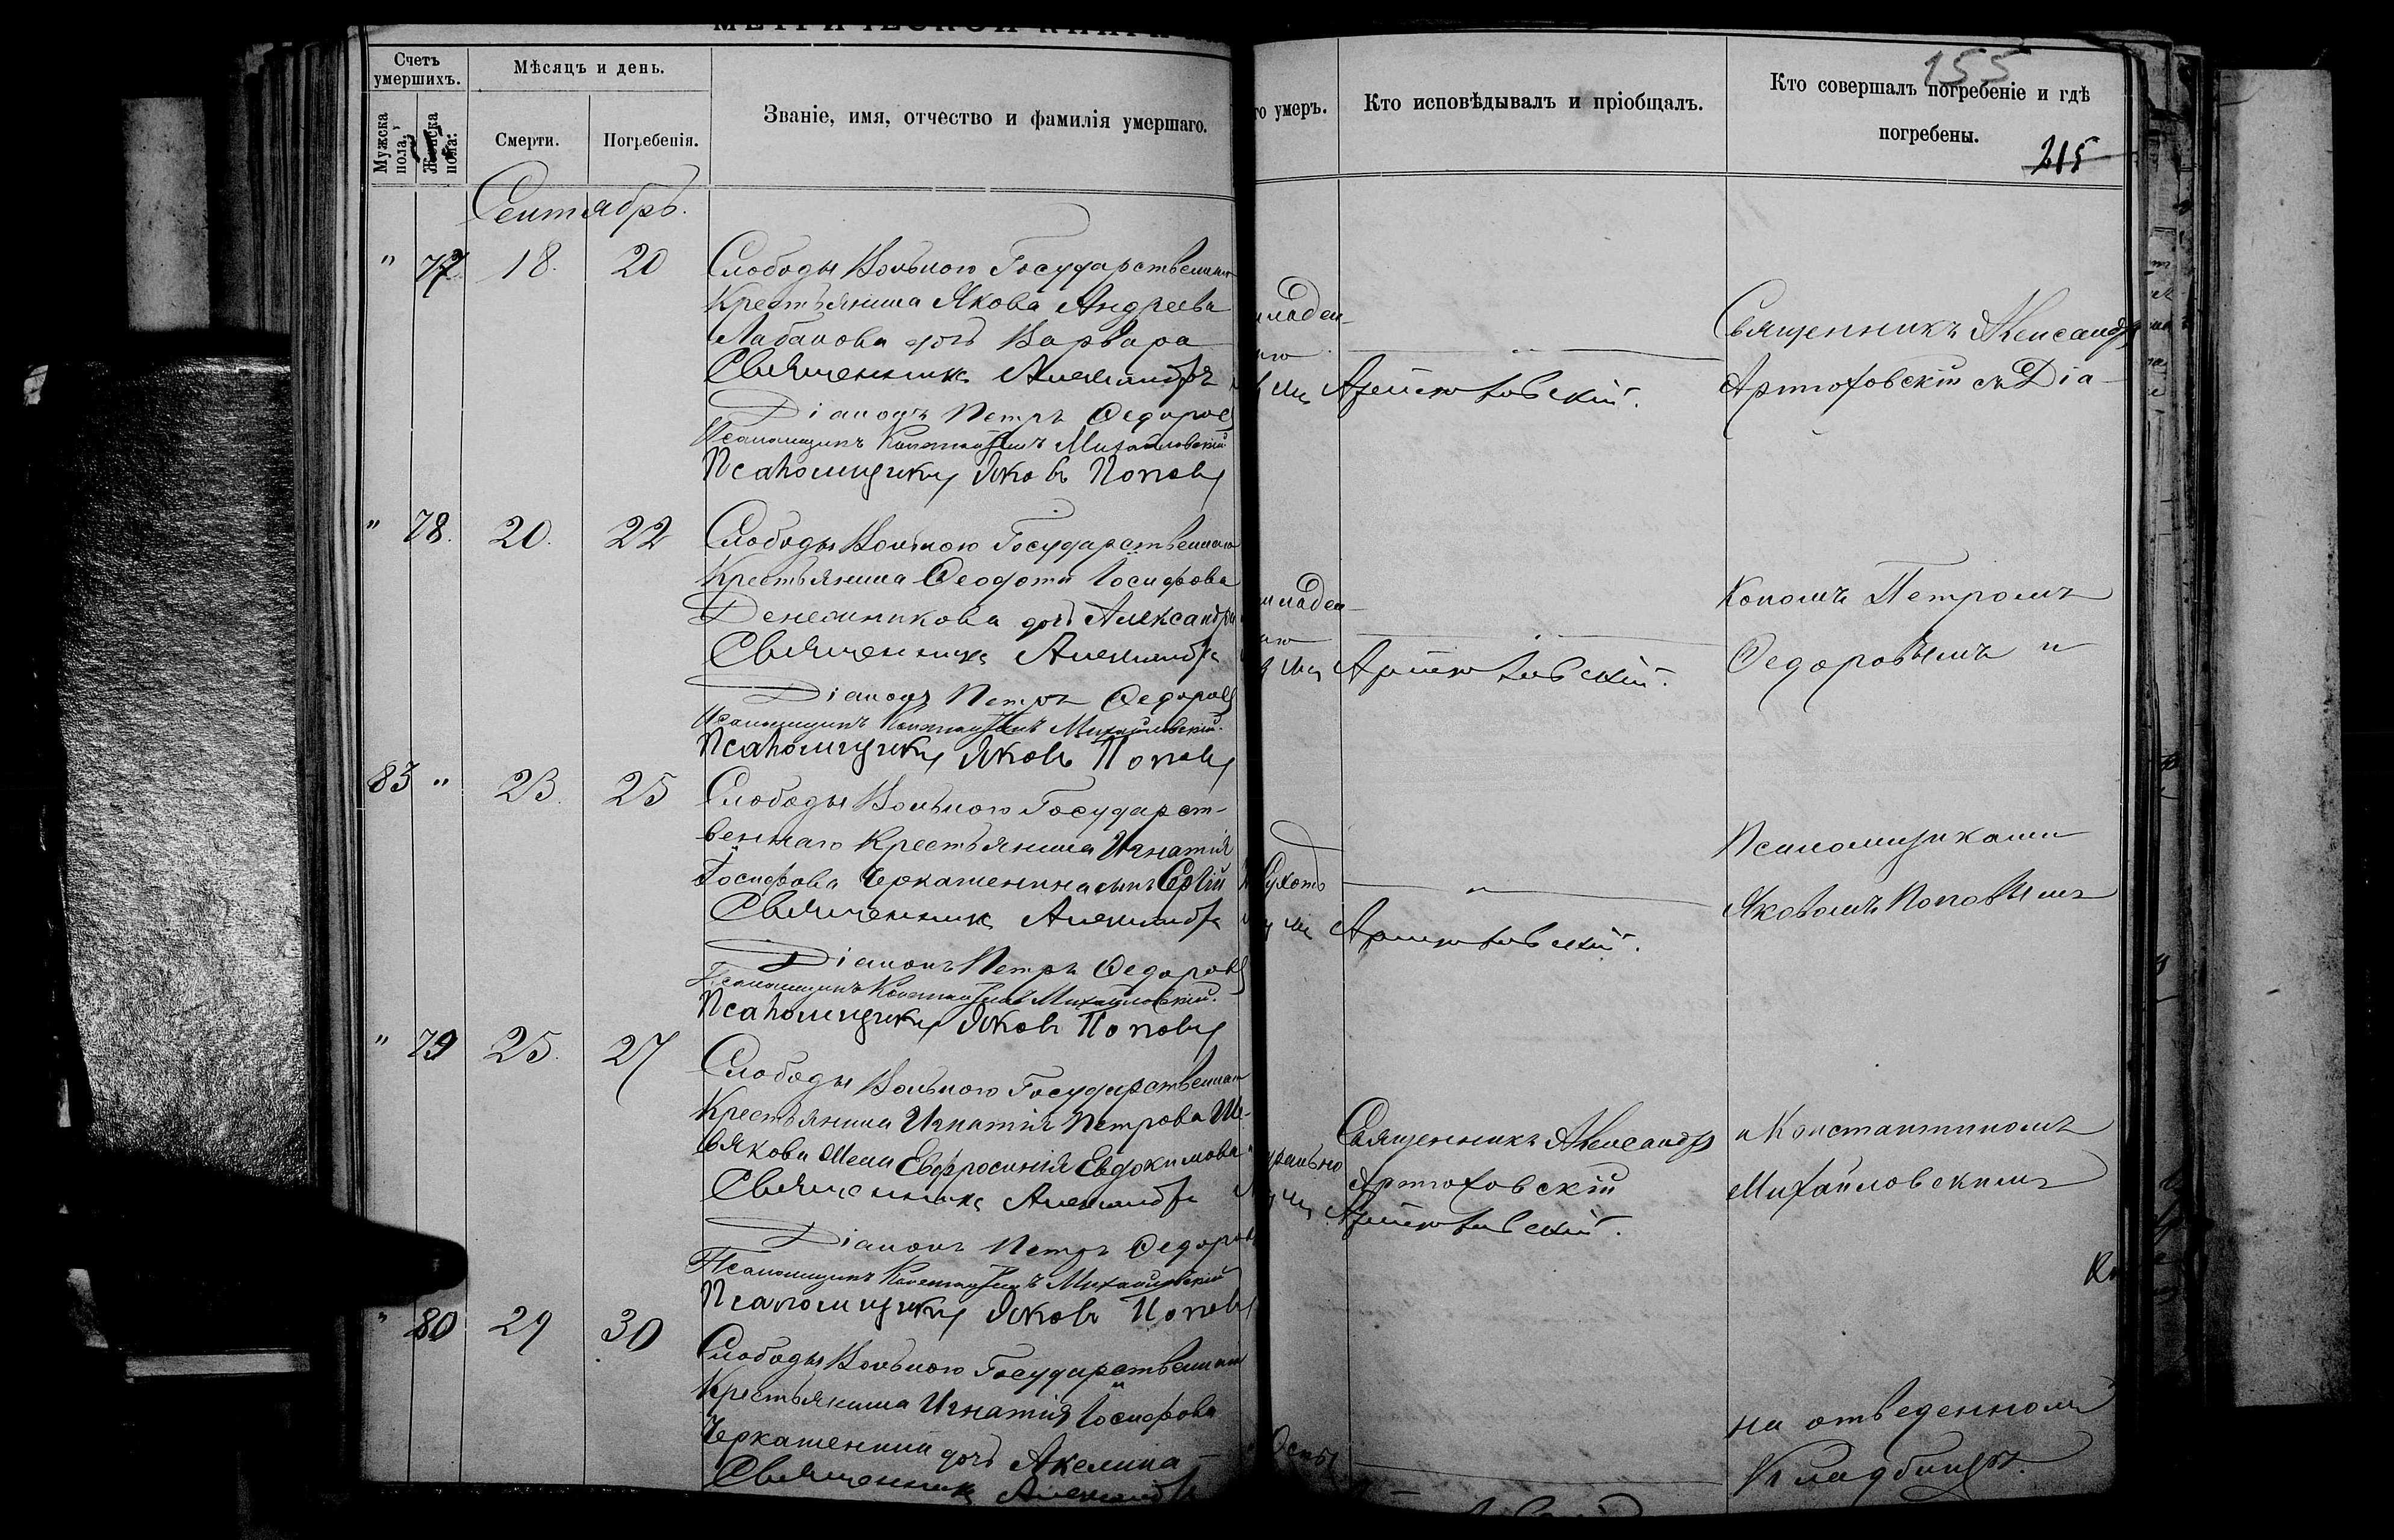 Счетъ умершихъ.
Мужска пола.
Женска пола.
Мѣсяцъ и день.
Смерти.
Погребенія.
Званіе, имя, отчество и фамилія умершаго.
го умеръ.
Кто исповѣдывалъ и пріобщалъ.
Кто совершалъ погребеніе и гдѣ
погребены.
155
215
Сентябрь.
" 77 18. 20 Слободы Вольного Государственнаго
Крестьянина Якова Андреева
Лабанова дочь Варвара
Священникъ Александръ
Діаконъ Петръ Ѳедоровъ
Псаломщикъ Константинъ Михайловскій
Псаломщикъ Яковъ Поповъ
" 78. 20. 22 Слободы Вольного Государственнаго
Крестьянина Ѳеодота Іосифова
Денежникова дочь Александра
Священникъ Александръ
Діаконъ Петръ Ѳедоровъ
Псаломщикъ Константинъ Михайловскій.
Псаломщикъ Яковъ Поповъ
83 " 23. 25 Слободы Вольного Государст-
веннаго Крестьянина Игнатія
Іосифова Черкашенина сынъ Сергій
Священникъ Александръ
Діаконъ Петръ Ѳедоровъ
Псаломщикъ Константинъ Михайловскій.
Псаломщикъ Яковъ Поповъ
" 79 25. 27 Слободы Вольного Государственнаго
Крестьянина Игнатія Петрова Ше-
вякова жена Евфросинія Евдокимова
Священникъ Александръ
Діаконъ Петръ Ѳедоровъ
Псаломщикъ Константинъ Михайловскій
Псаломщикъ Яковъ Поповъ
" 80 29 30 Слободы Вольного Государственнаго
Крестьянина Игнатія Іосифова
Черкашенина дочь Акелина
Священникъ Александръ
младен-
Артюховскій.
младен-
Артюховскій.
Артюховскій.
Священникъ Александръ
Артюховскій
Артюховскій.
Оспы
Священникъ Александръ
Артюховскій съ Діа-
кономъ Петромъ
Ѳедоровымъ и
Псаломщиками
Яковомъ Поповымъ
и Константиномъ
Михайловскимъ
на отведенномъ
Кладбищѣ.